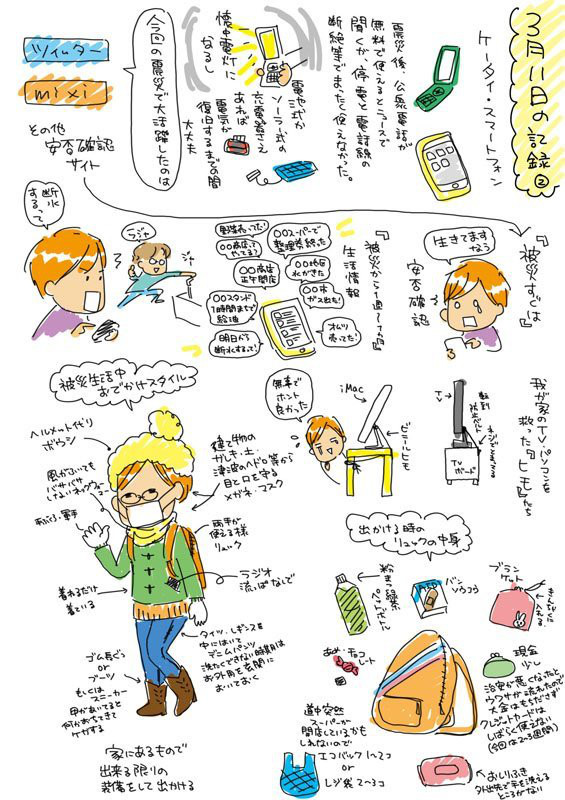 3月11日の記録②
ケータイ・スマートフォン
震災後、公衆電話が
無料で使えるとニュースで
聞くが、停電と電話線の
断絶等でまったく使えなかった。
電池式か
ソーラー式の
充電器さえ
あれば
電気が
復旧するまでの間
大丈夫
懐中電灯に
なるし
今回の震災で大活躍したのは
ツイッター
mixi
その他
安否確認
サイト
『被災すぐは』
生きてます
よう
安否確認
『被災から1週間で』
生活情報
〇〇スーパーで
整理券終った
〇〇商店
正午開店
〇〇商店って
やってる?
〇〇スタンド
1時間まちで
給油
明日から
断水するって!
オムツ
売ってた!
断水
するって
ラジャ
我が家のTV・パソコンを
救った『ヒモ』たち
TV
転倒
防止ベルト
TV
ボード
iMac
ビニールヒモ
無事で
ホント
良かった
被災生活中
おでかけスタイル
ヘルメット代り
ボウシ
風がふいても
バサバサ
しない
手ぶくろ、軍手
着れるだけ
着ている
建て物の
ガレキ・土
津波のヘドロ等から
目と口を守る
メガネ・マスク
両手が
使える様
リュック
ラジオ
流しっぱなしで
タイツ、レギンスを
中にはいて
デニムパンツ
洗たくできない時期は
お外用を玄関に
おいておく
ゴム長ぐつ
or
ブーツ
もしくは
スニーカー
甲があいてると
何かおちてきて
ケガする
家にあるもので
出来る限りの
装備をして出かける
出かける時の
リュックの中身
粉まつ緑茶
ペットボトル
バンソウコウ
ブラン
ケット
きんちゃくに
入れる
あめ・チョコ
レート
現金
少し
治安が悪くなったと
ウワサが流れたので
大金はもちださず
クレジットカードは
しばらく使えない
(今回は2~3週間)
道中突然
スーパーが
開店しているかも
しれないので
エコバック1~2コ
or
レジ袋2~3コ
おしりふき
外出先で手を洗える
ところがない